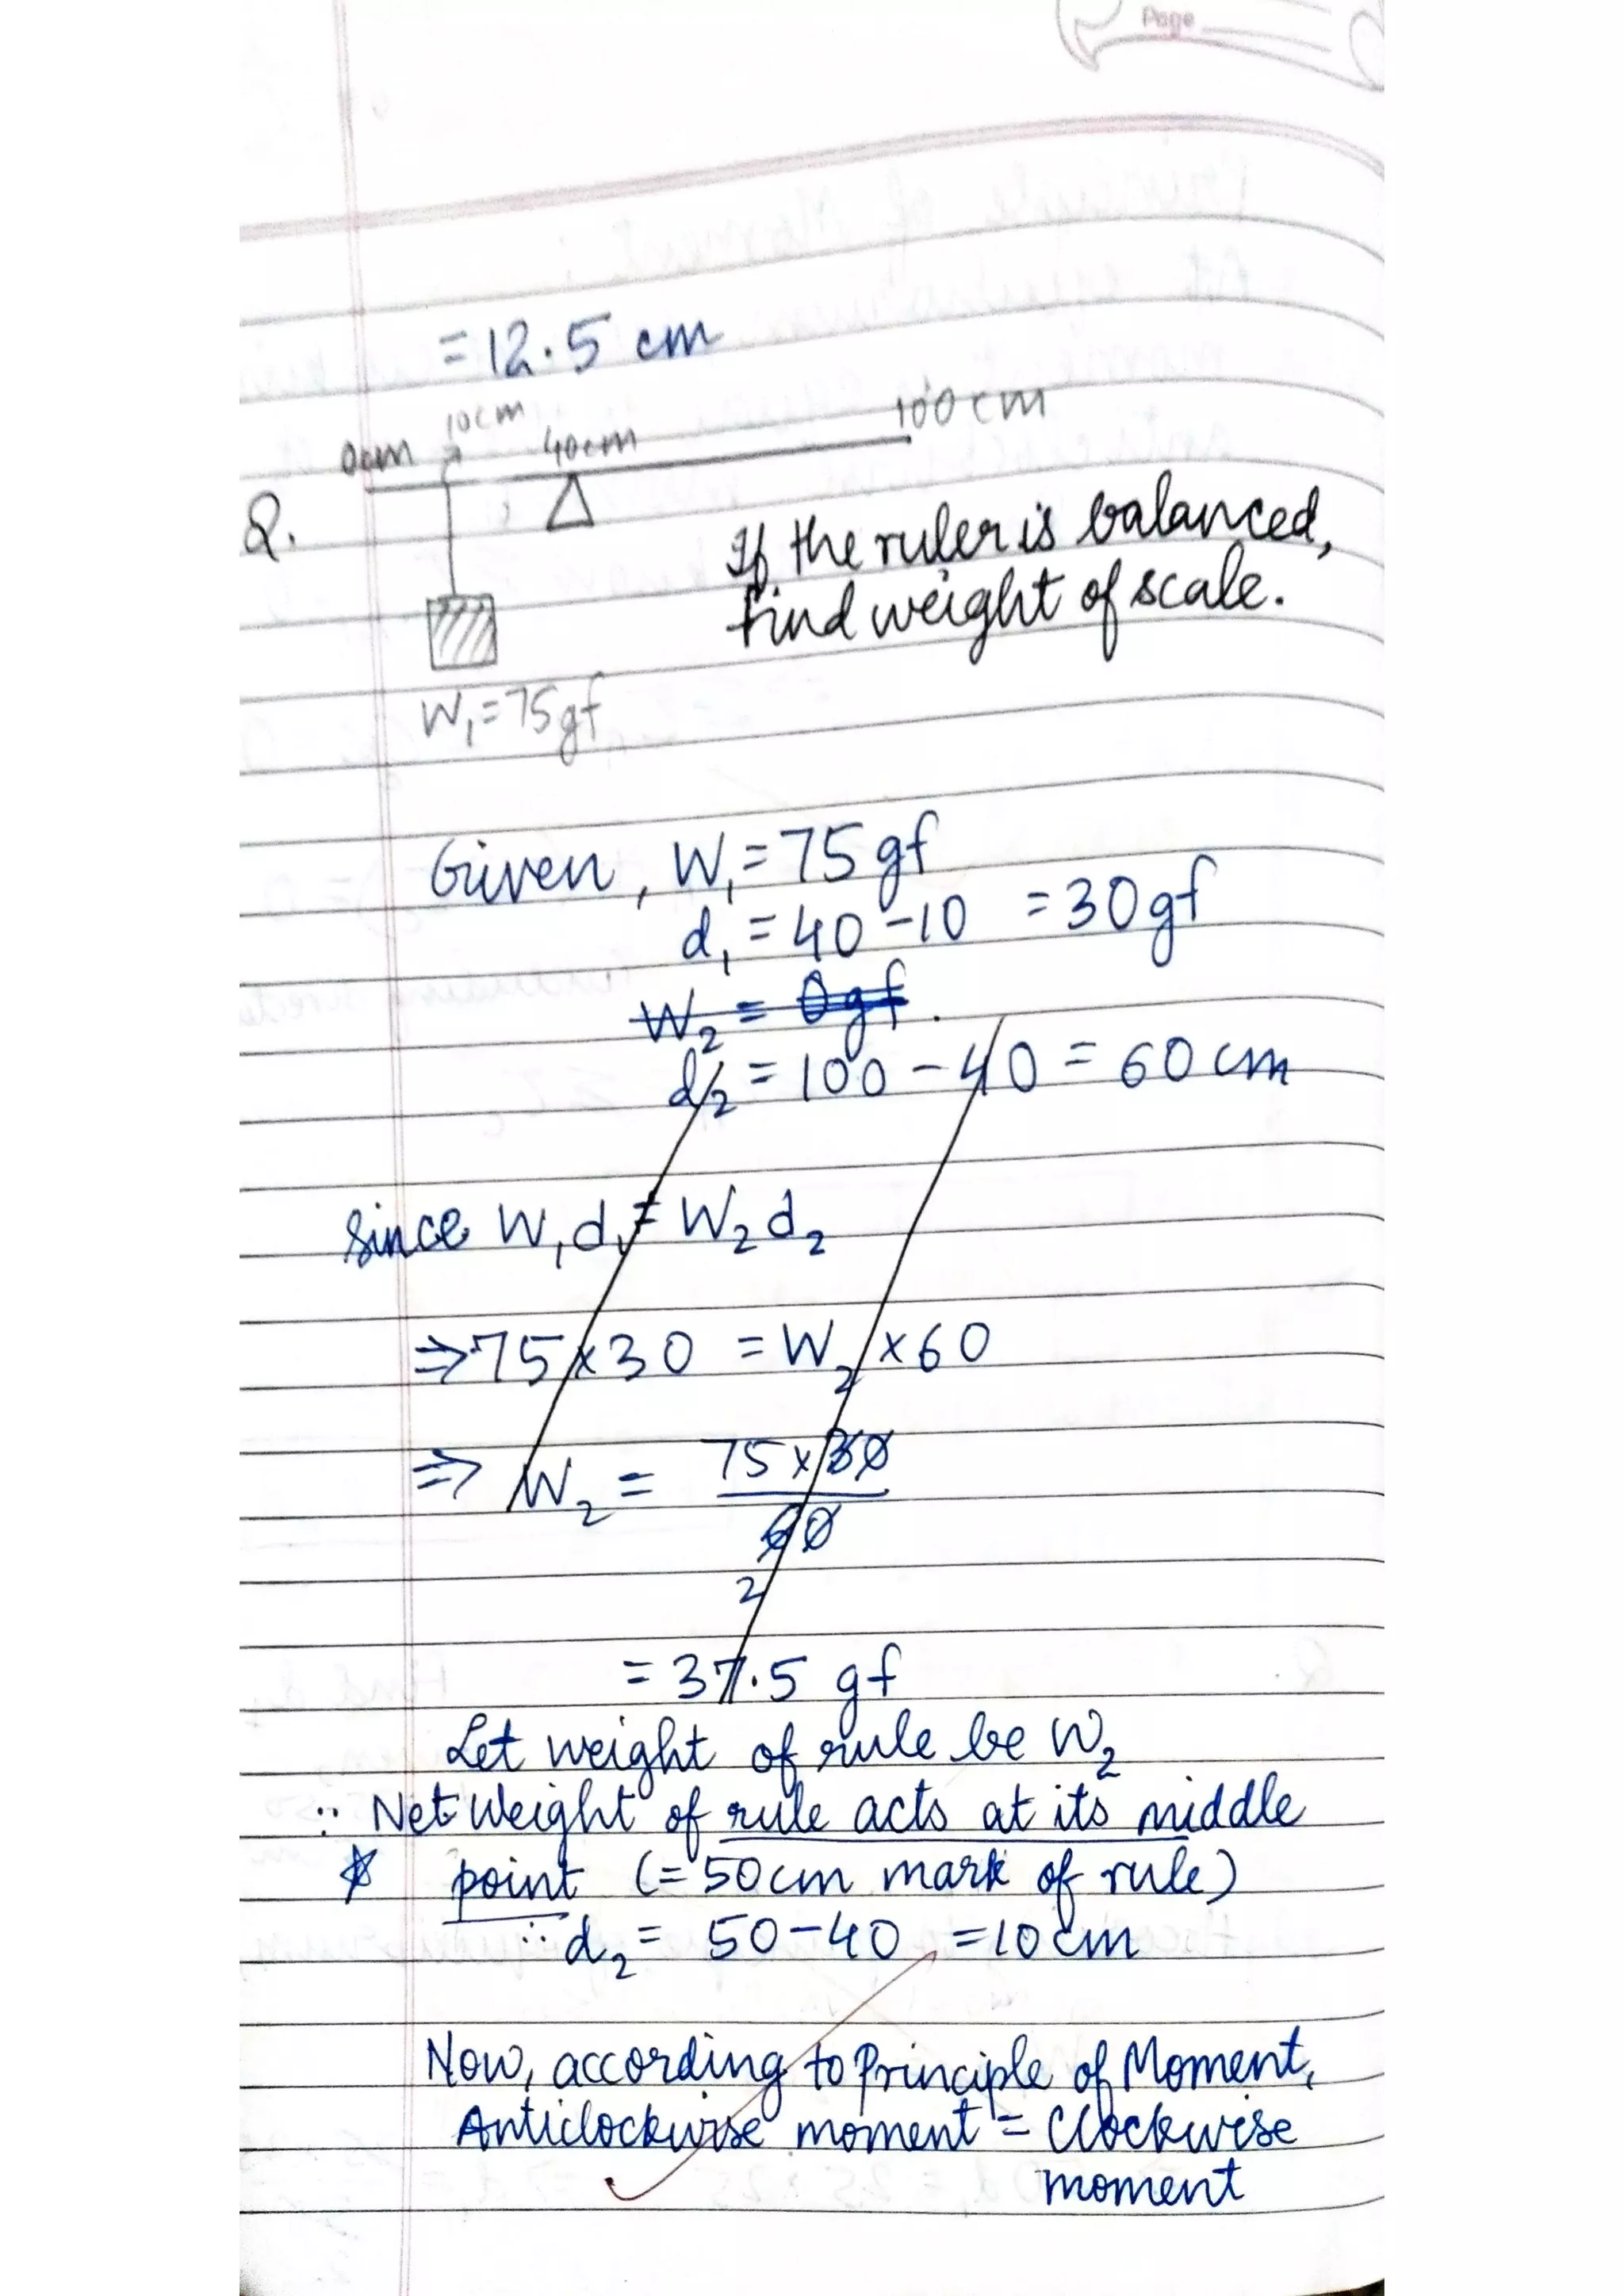 Page
= 12.5 cm
0cm 10cm 40cm 100cm
Q.
If the ruler is balanced,
find weight of scale.
W₁=75gf
Given, W₁=75gf
d₁ = 40-10 = 30gf
W₂ = 0gf.
d₂ = 100-40 = 60cm
since W₁d₁ = W₂d₂
⇒75×30 = W₂×60
⇒ W₂ = 75×30
60
2
= 37.5 gf
Let weight of rule be W₂
∵ Net Weight of rule acts at its middle
point (= 50cm mark of rule)
∴ d₂ = 50-40 = 10cm
Now, according to Principle of Moment,
Anticlockwise moment = Clockwise
moment